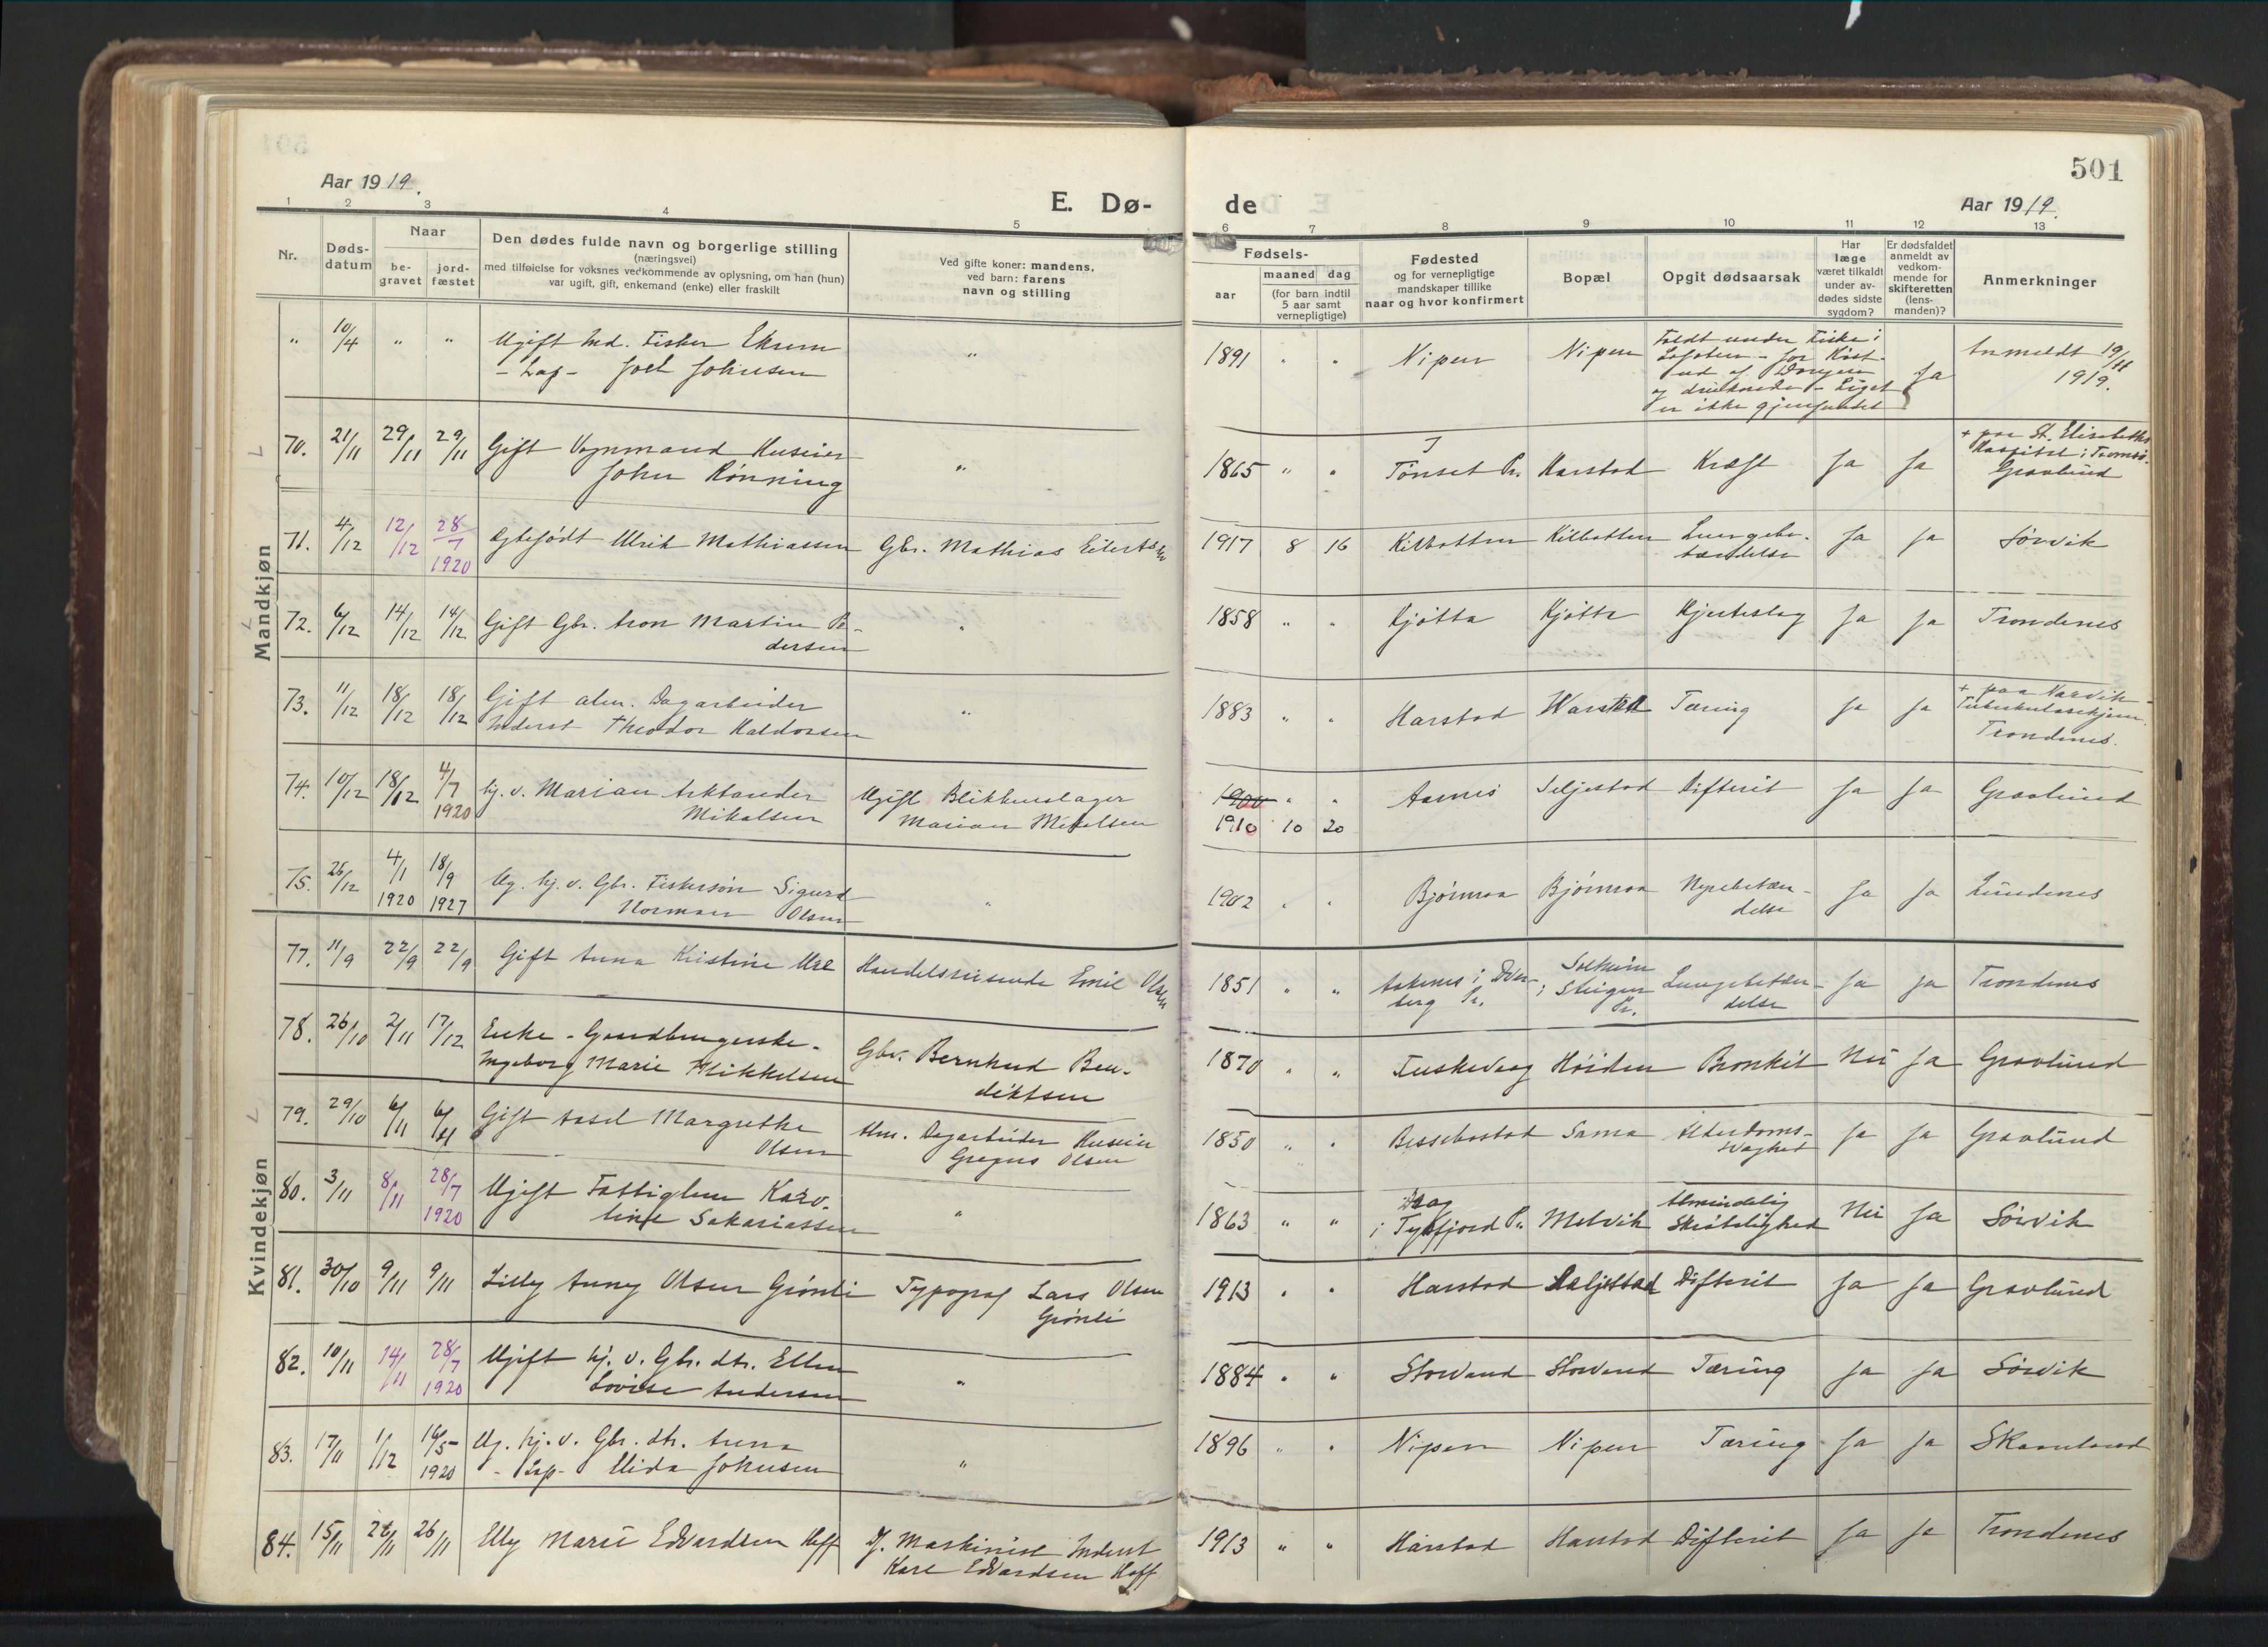 501
Aar 1919.
E. Dø-
de
Aar 1919.
1 2 3 4 5
6 7 8 9 10 11 12 13
Nr.
Døds-
datum
Naar
be-
gravet
jord-
fæstet
Den dødes fulde navn og borgerlige stilling
(næringsvei)
med tilføielse for voksnes vedkommende av oplysning, om han (hun)
var ugift, gift, enkemand (enke) eller fraskilt
Ved gifte koner: mandens,
ved barn: farens
navn og stilling
Fødsels-
aar
maaned dag
(for barn indtil
5 aar samt
vernepligtige)
Fødested
og for vernepligtige
mandskaper tillike
naar og hvor konfirmert
Bopæl
Opgit dødsaarsak
Har
læge
været tilkaldt
under av-
dødes sidste
sygdom?
Er dødsfaldet
anmeldt av
vedkom-
mende for
skifteretten
(lens-
manden)?
Anmerkninger
Mandkjøn
" 10/4 " " Ugift Ind. Fisker " 1891 " " Nipen Nipen Faldt under Fiske i Ja Anmeldt 19/11
- Lap - Joel Johnsen Lofoten - 1919.
og druknede - Liget
er ikke gjenfundet
70. 21/11 29/11 29/11 Gift Vognmand Huseier " 1865 " " Tønset Pr. Harstad Kræft Ja Ja + paa St. Elisabeths
John Rønning Hospital i Tromsø.
Gravlund
71. 4/12 12/12 28/7 1920 Ulrik Mathiassen Gbr. Mathias Eilertsen 1917 8 16 Kilbotten Kilbotten Lungebe- Ja Ja Sørvik
tændelse
72. 6/12 14/12 14/12 Gift Gbr. Aron Martin Pe- " 1858 " " Kjøtta Kjøtta Hjerteslag Ja Ja Trondenes
dersen
73. 11/12 18/12 18/12 Gift alm. Dagarbeider " 1883 " " Harstad Harstad Tæring Ja Ja + paa Narvik
Inderst Theodor Haldorsen Tuberkulosehjem.
Trondenes.
74. 10/12 18/12 4/7 1920 hj. v. Marian Arktander Ugift Blikkenslager 1900 " " Aarnes Seljestad Difterit Ja Ja Gravlund
Mikalsen Marian Mikalsen 1910 10 20
75. 26/12 4/1 1920 18/9 1927 Ug. hj. v. Gbr. Fiskersøn Sigurd " 1902 " " Bjørnraa Bjørnraa Nyrebetæn- Ja Ja Lundenes
Norman Olsen delse
Kvindekjøn
77. 11/9 22/9 22/9 Gift Anna Kristine Handelsreisende Emil Olsen 1851 " " i Dver- Ja Ja Trondenes
berg Pr. i Steigen Pr. Lungebetæn-
delse
78. 26/10 2/11 17/12 Enke - Gaardbrugerske - Gbr. Bernhard Ben- 1870 " " Fuskevaag Høiden Bronkit Nei Ja Gravlund
Ingeborg Marie Mikkelsen diktsen
79. 29/10 6/11 6/11 Gift Assel Margrethe Alm. Dagarbeider Huseier 1850 " " Bessebostad Sama Alderdoms- Ja Ja Gravlund
Olsen Gregus Olsen svaghed
80. 3/11 8/11 28/7 1920 Ugift Fattiglem Karo- " 1863 " " Drag Melvik Almindelig Nei Ja Sørvik
line Sakariassen i Tysfjord Pr. Skrøbelighed
81. 30/10 9/11 9/11 Lilly Anny Olsen Grønli Typograf Lars Olsen 1913 " " Harstad Seljestad Difterit Ja Ja Gravlund
Grønli
82. 10/11 14/11 28/7 1920 Ugift hj. v. Gbr. dtr. Ellen " 1884 " " Storvand Storvand Tæring Ja Ja Sørvik
Lovise Andersen
83. 17/11 1/12 16/5 1920 Ug. hj. v. Gbr. dtr. Anna " 1896 " " Nipen Nipen Tæring Ja Ja Skaanland
- Lap - Elida Johnsen
84. 15/11 26/11 Elly Marie Edvardsen Hoff Maskinist Inderst 1913 " " Harstad Harstad Difterit Ja Ja Trondenes
Karl Edvardsen Hoff